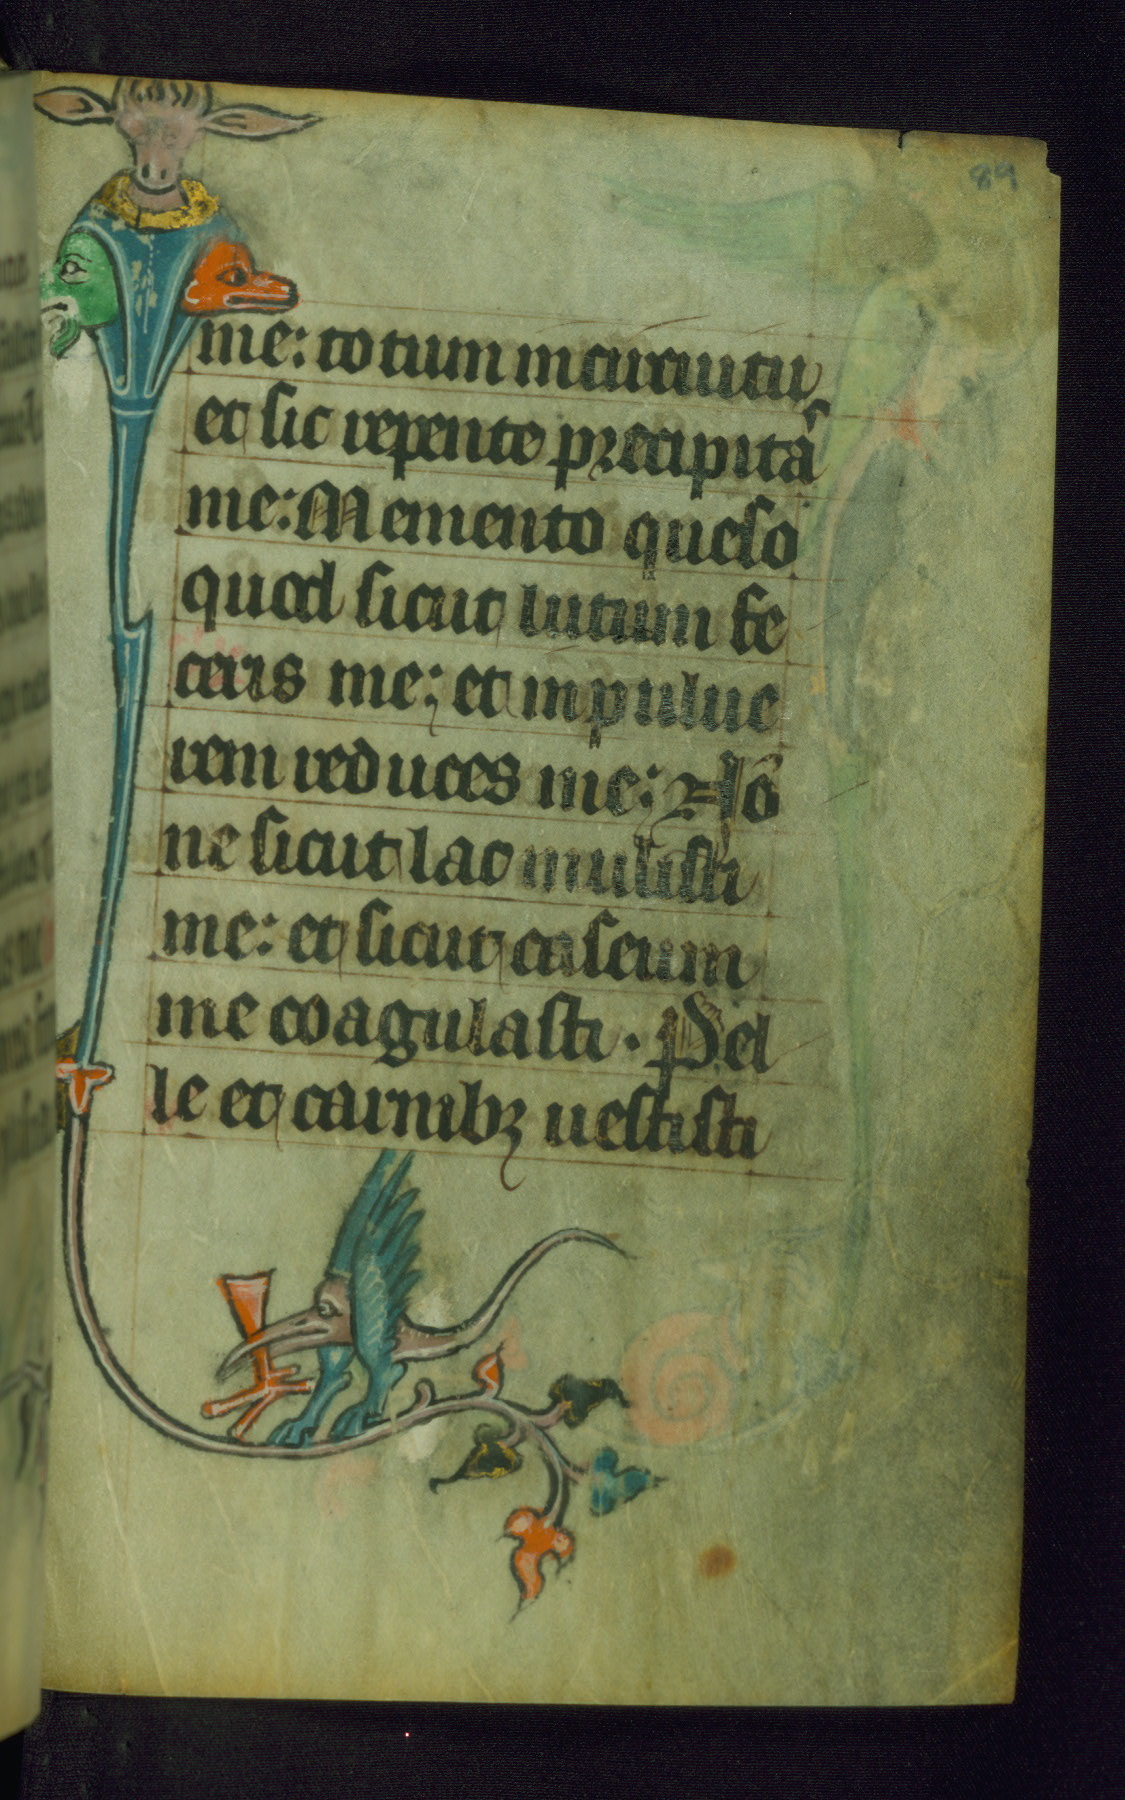 89
me: totum in circuitu
et sic repente precipitā
me: Memento queso
quod sicut lutum fe
ceris me: et in pulue
rem reduces me: Nō
ne sicut lac mulsisti
me: et sicut caseum
me coagulasti. Pel
le et carnibꝫ uestisti